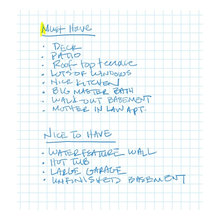 MUST HAVE
• DECK
• PATIO
• ROOF TOP TERRACE
• LOTS OF WINDOWS
• NICE KITCHEN
• BIG MASTER BATH
• WALK-OUT BASEMENT
• MOTHER IN LAW APT.
NICE TO HAVE
• WATERFEATURE WALL
• HOT TUB
• LARGE GARAGE
• UNFINISHED BASEMENT